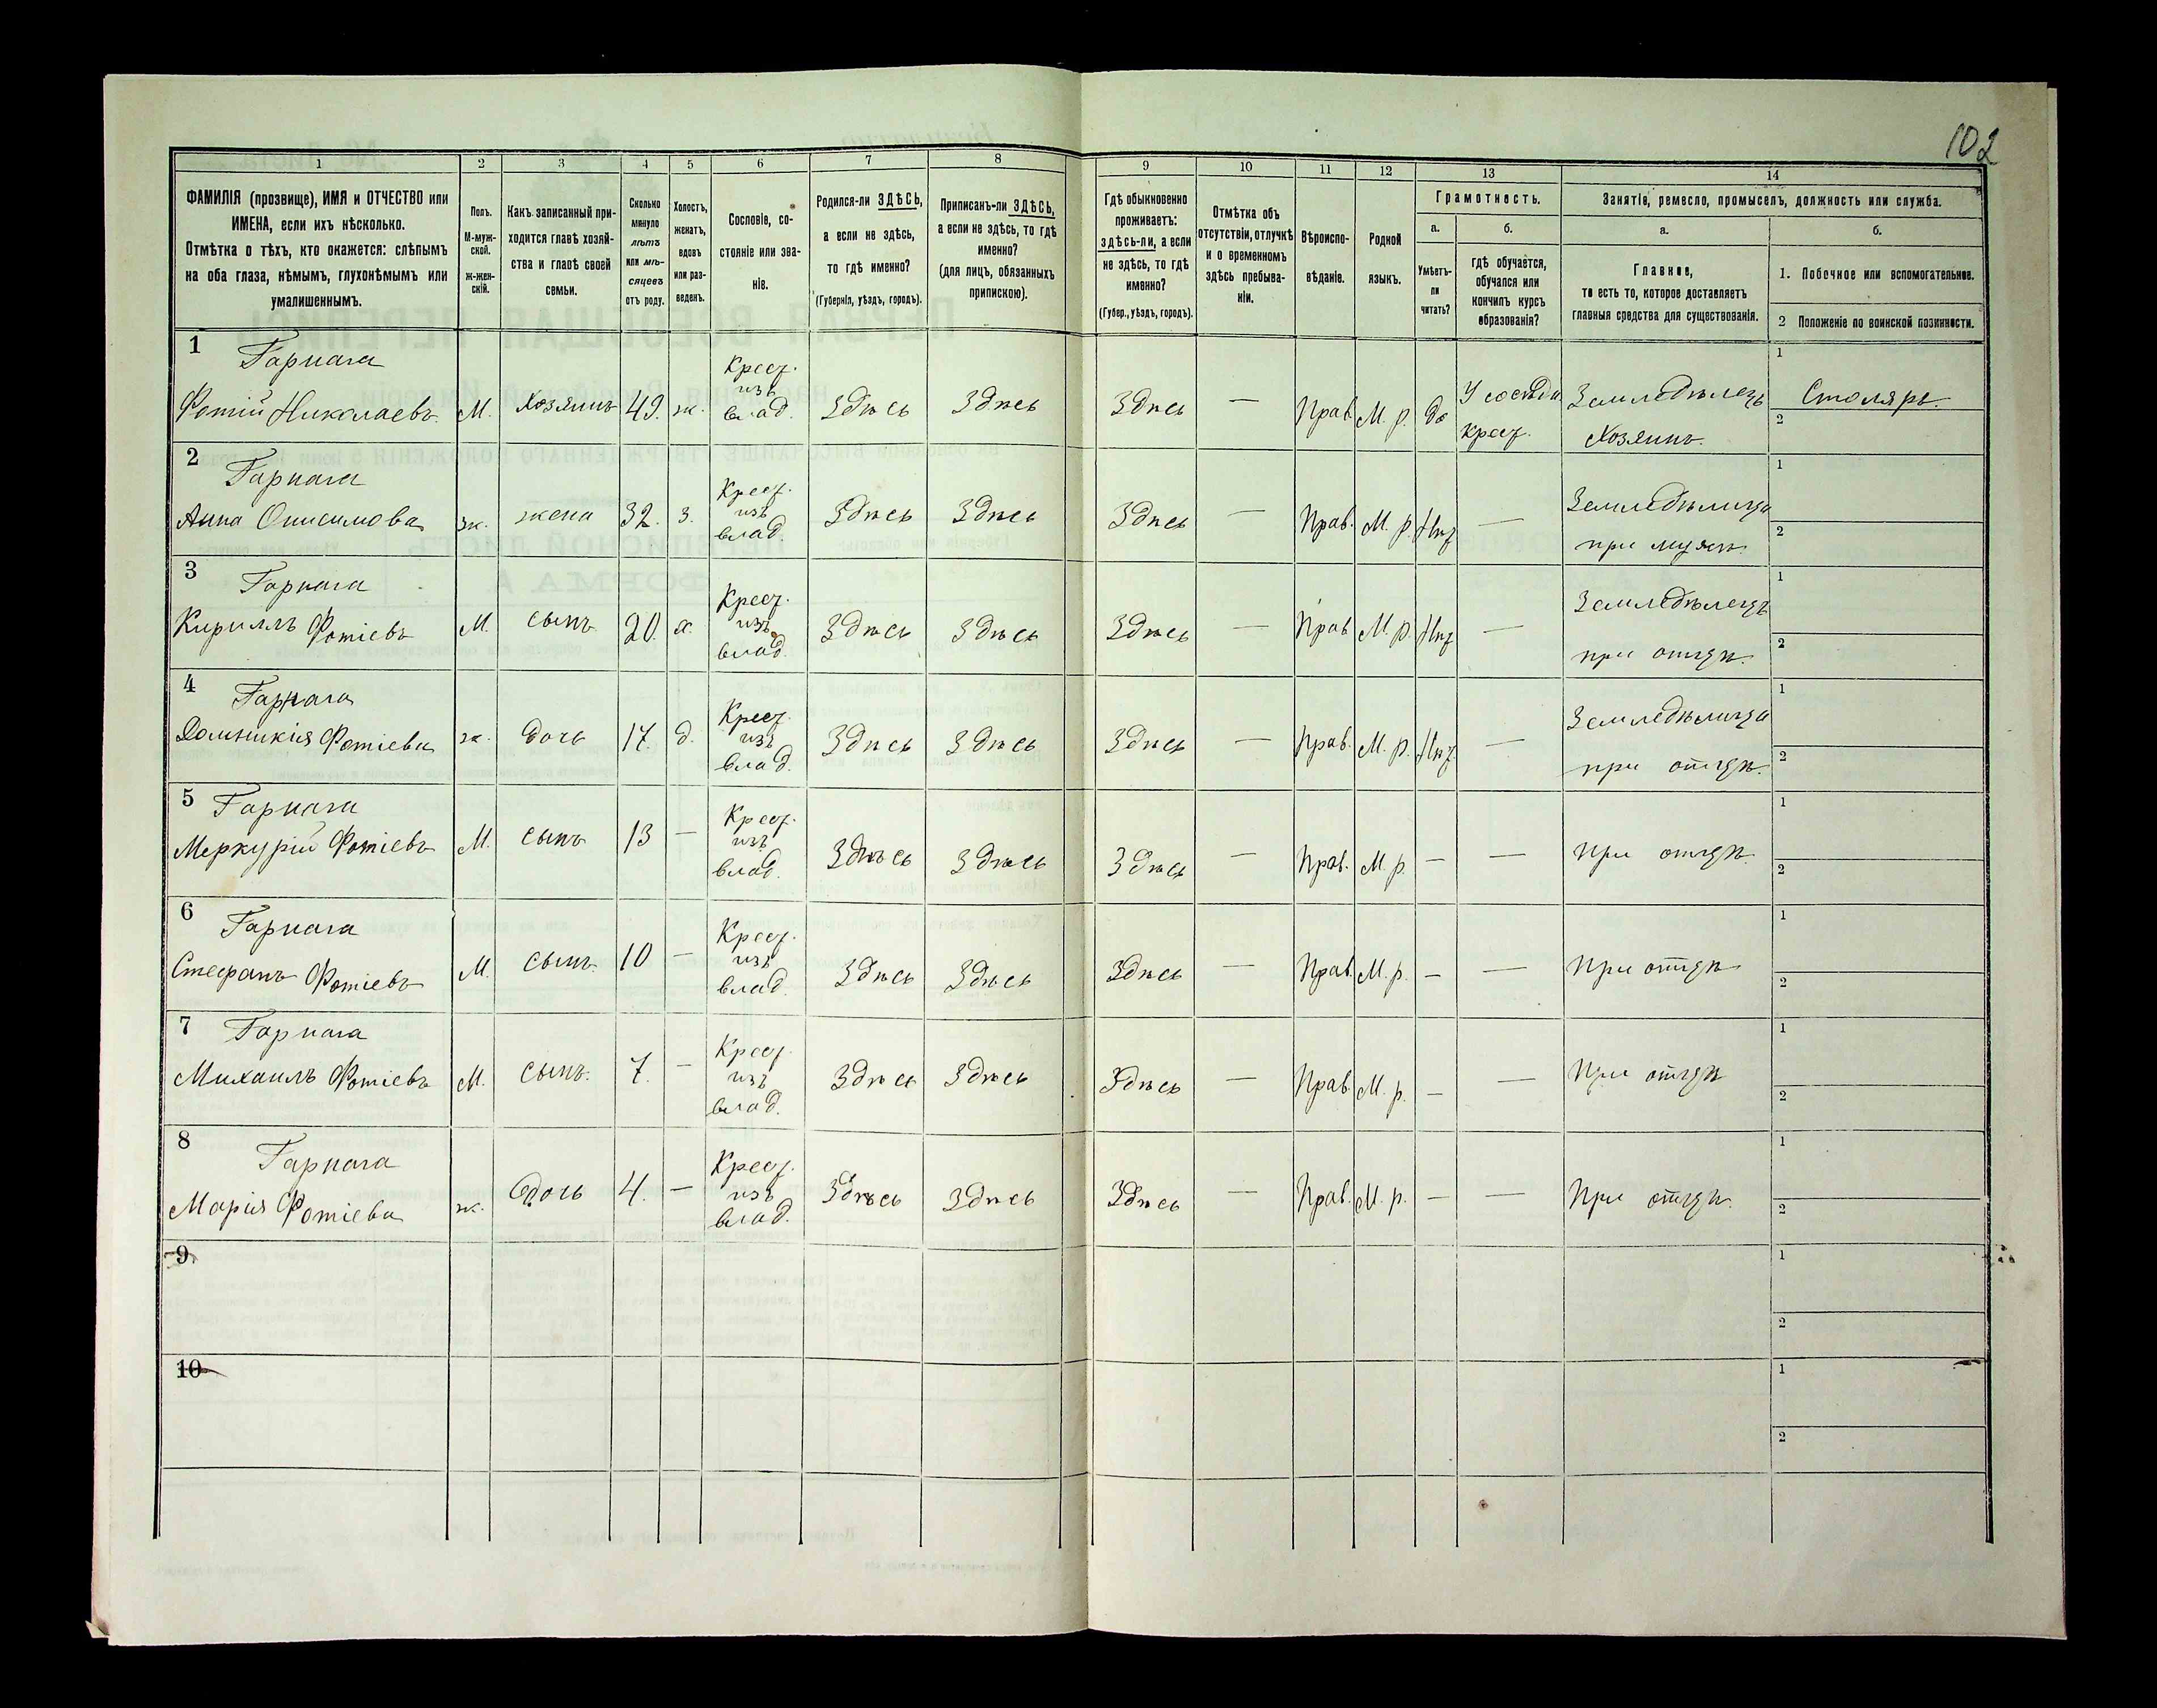 102
1 2 3 4 5 6 7 8 9 10 11 12 13 14
ФАМИЛІЯ (прозвище), ИМЯ и ОТЧЕСТВО или
ИМЕНА, если ихъ нѣсколько.
Отмѣтка о тѣхъ, кто окажется: слѣпымъ
на оба глаза, нѣмымъ, глухонѣмымъ или
умалишеннымъ.
Полъ.
М-муж-
ской.
Ж-жен-
скій.
Какъ записанный при-
ходится главѣ хозяй-
ства и главѣ своей
семьи.
Сколько
минуло
лѣтъ
или мѣ-
сяцевъ
отъ роду.
Холостъ,
женатъ,
вдовъ
или раз-
веденъ.
Сословіе, со-
стояніе или зва-
ніе.
Родился-ли ЗДѢСЬ,
а если не здѣсь,
то гдѣ именно?
(Губернія, уѣздъ, городъ).
Приписанъ-ли ЗДѢСЬ,
а если не здѣсь, то гдѣ
именно?
(для лицъ, обязанныхъ
припискою).
Гдѣ обыкновенно
проживаетъ:
здѣсь-ли, а если
не здѣсь, то гдѣ
именно?
(Губер., уѣздъ, городъ).
Отмѣтка объ
отсутствіи, отлучкѣ
и о временномъ
здѣсь пребыва-
ніи.
Вѣроиспо-
вѣданіе.
Родной
языкъ.
Грамотность.
а.
Умѣетъ-
ли
читать?
б.
гдѣ обучается,
обучался или
кончилъ курсъ
образованія?
Занятіе, ремесло, промыселъ, должность или служба.
а.
Главное,
то есть то, которое доставляетъ
главныя средства для существованія.
б.
1. Побочное или вспомогательное.
2 Положеніе по воинской повинности.
1 Гарнага Крест. 1
изъ У соседа Земледѣлецъ
Фотій Николаевъ. М. Хозяинъ 49. ж. влад. Здѣсь Здѣсь Здѣсь — Прав. М. р. да Столяръ.
крест. Хозяинъ. 2
2 Гарнага Крест. 1
изъ Земледѣлица
Анна Онисимова ж. жена 32. з. влад. Здѣсь Здѣсь Здѣсь — Прав. М. р. Нѣт —
при мужѣ. 2
3 Гарнага Крест. 1
изъ Земледѣлецъ
Кириллъ Фотіевъ М. сынъ 20. х. влад. Здѣсь Здѣсь Здѣсь — Прав. М. р. Нѣт —
при отцѣ. 2
4 Гарнага Крест. 1
изъ Земледѣлица
Домникія Фотіева ж. дочь 17. д. влад. Здѣсь Здѣсь Здѣсь — Прав. М. р. Нѣт —
при отцѣ. 2
5 Гарнага Крест. 1
изъ
Меркурій Фотіевъ М. сынъ 13 — влад. Здѣсь Здѣсь Здѣсь — Прав. М. р. — — При отцѣ
2
6 Гарнага Крест. 1
изъ
Стефанъ Фотіевъ М. сынъ. 10 — влад. Здѣсь Здѣсь Здѣсь — Прав. М. р. — — При отцѣ
2
7 Гарнага Крест. 1
изъ
Михаилъ Фотіевъ М. сынъ. 7. — влад. Здѣсь Здѣсь Здѣсь — Прав. М. р. — — При отцѣ
2
8 Гарнага Крест. 1
изъ
Марія Фотіева ж. Дочь 4. — влад. Здѣсь Здѣсь Здѣсь — Прав. М. р. — — При отцѣ.
2
9 1
2
10 1
2